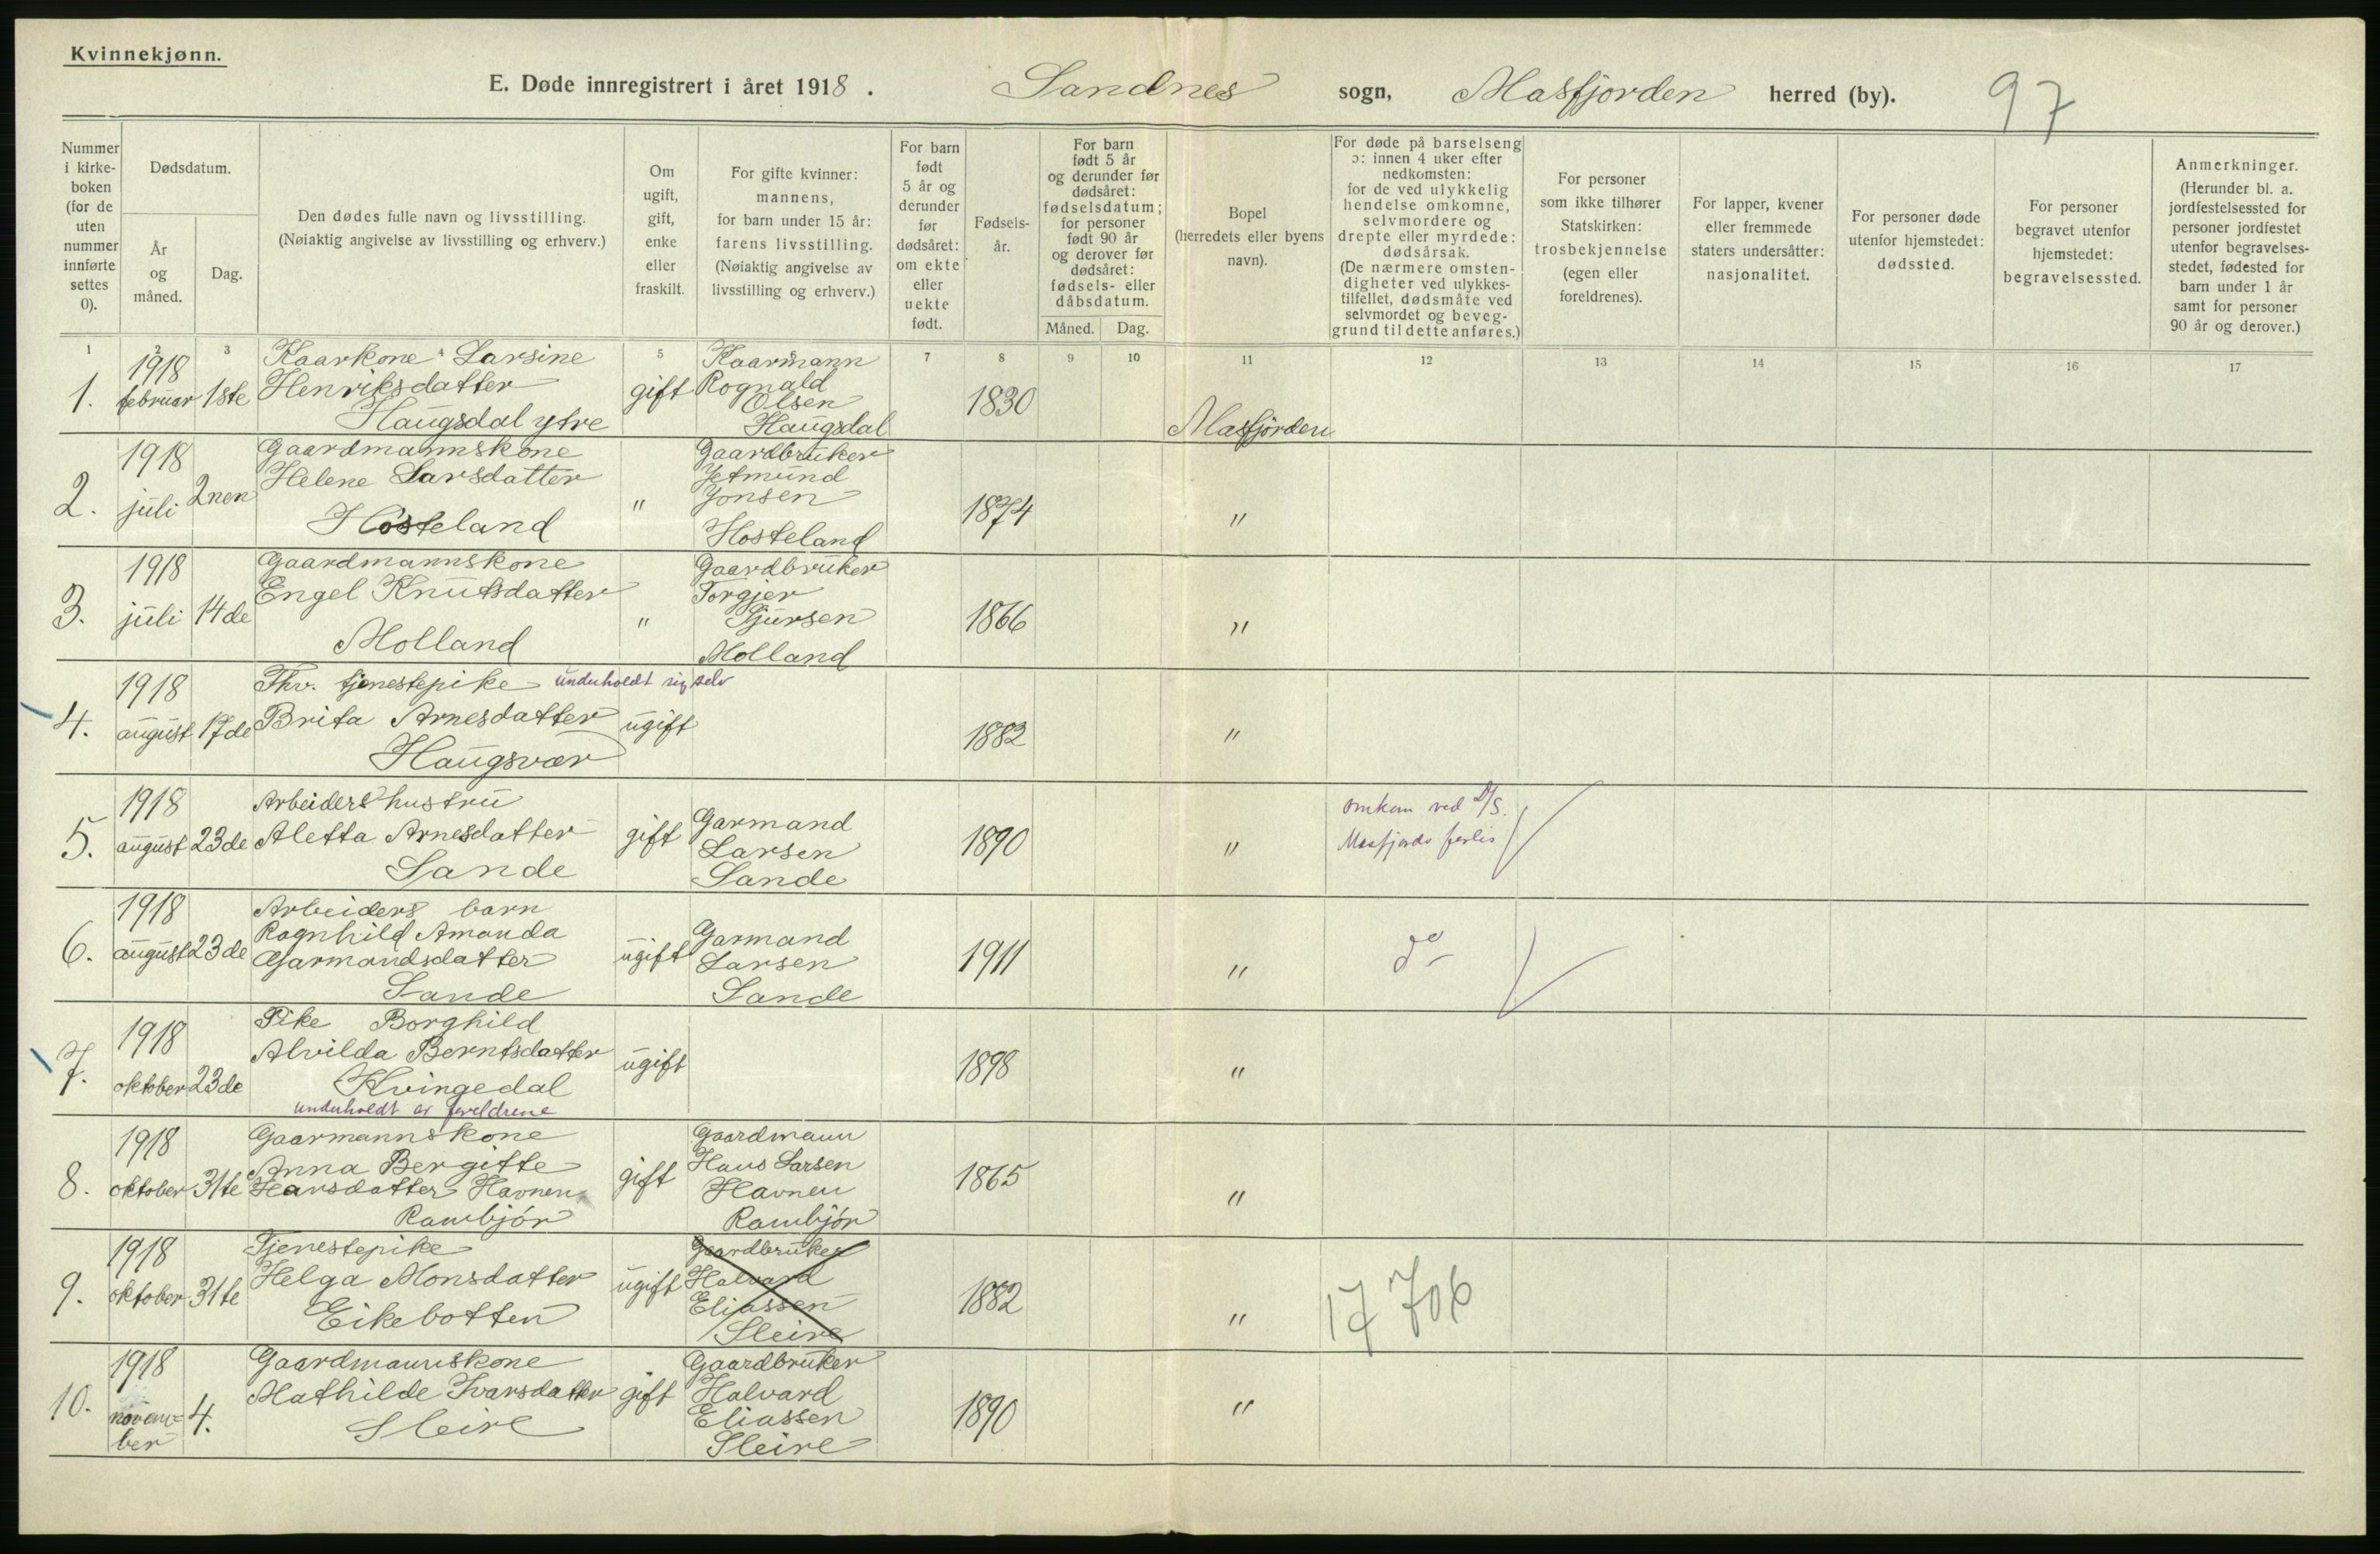 Kvinnekjønn.
E. Døde innregistrert i året 1918. Sandnes sogn, Masfjorden herred (by). 97
Nummer i kirkeboken (for de uten nummer innførte settes 0).
Dødsdatum.
År og måned.
Dag.
Den dødes fulle navn og livsstilling.
(Nøiaktig angivelse av livsstilling og erhverv.)
Om ugift, gift, enke eller fraskilt.
For gifte kvinner: mannens, for barn under 15 år: farens livsstilling. (Nøiaktig angivelse av livsstilling og erhverv.)
For barn født 5 år og derunder før dødsåret: om ekte eller uekte født.
Fødselsår.
For barn født 5 år og derunder før dødsåret: fødselsdatum; for personer født 90 år og derover før dødsåret: fødsels- eller dåbsdatum.
Måned. Dag.
Bopel (herredets eller byens navn).
For døde på barselseng ɔ: innen 4 uker efter nedkomsten: for de ved ulykkelig hendelse omkomne, selvmordere og drepte eller myrdede: dødsårsak. (De nærmere omstendigheter ved ulykkestilfellet, dødsmåte ved selvmordet og beveggrund til dette anføres.)
For personer som ikke tilhører Statskirken: trosbekjennelse (egen eller foreldrenes).
For lapper, kvener eller fremmede staters undersåtter: nasjonalitet.
For personer døde utenfor hjemstedet: dødssted.
For personer begravet utenfor hjemstedet: begravelsessted.
Anmerkninger. (Herunder bl. a. jordfestelsessted for personer jordfestet utenfor begravelsesstedet, fødested for barn under 1 år samt for personer 90 år og derover.)
1 2 3 5 7 8 9 10 11 12 13 14 15 16 17
1. 1918 februar 1ste Kaarkone Larsine Henriksdatter Haugsdal ytre gift Kaarmann Rognald Olsen Haugsdal 1830 Masfjorden
2. 1918 juli 2nen Gaardmannskone Helene Larsdatter Hosteland " Gaardbruker Jetmund Jonsen Hosteland 1874 "
3. 1918 juli 14de Gaardmannskone Engel Knutsdatter Molland " Gaardbruker Torgjer Sjursen Molland 1866 "
4. 1918 august 17de Fhv. tjenestepike underholdt sig selv Brita Arnesdatter Haugsvær ugift 1882 "
5. 1918 august 23de Arbeiders hustru Aletta Arnesdatter Sande gift Garmand Larsen Sande 1890 " omkom ved D/S. Masfjords forlis
6. 1918 august 23de Arbeiders barn Ragnhild Amanda Garmandsdatter Sande ugift Garmand Larsen Sande 1911 " do
7. 1918 oktober 23de Pike Borghild Alvilda Berntsdatter Kvingedal underholdt av foreldrene ugift 1898 "
8. 1918 oktober 31te Gaarmannskone Anna Bergitte Hansdatter Havnen Rambjör gift Gaardmann Hans Larsen Havnen Rambjör 1865 "
9. 1918 oktober 31te Tjenestepike Helga Monsdatter Eikebotten ugift Gaardbruker Halvard Eliassen Sleire 1882 " 17 706
10. 1918 november 4. Gaardmannskone Mathilde Ivarsdatter Sleire gift Gaardbruker Halvard Eliassen Sleire 1890 "